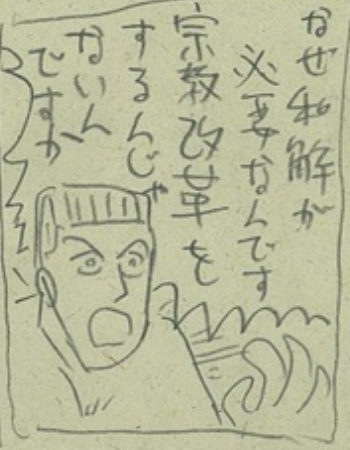 なぜ和解が
必要なんです
宗教改革を
するんじゃ
ないん
ですか